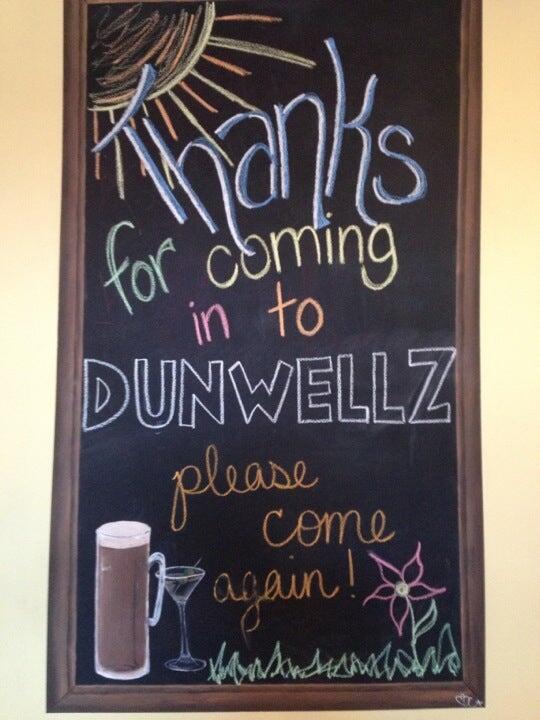 Thanks
for coming
in to
DUNWELLZ
please
come
again!